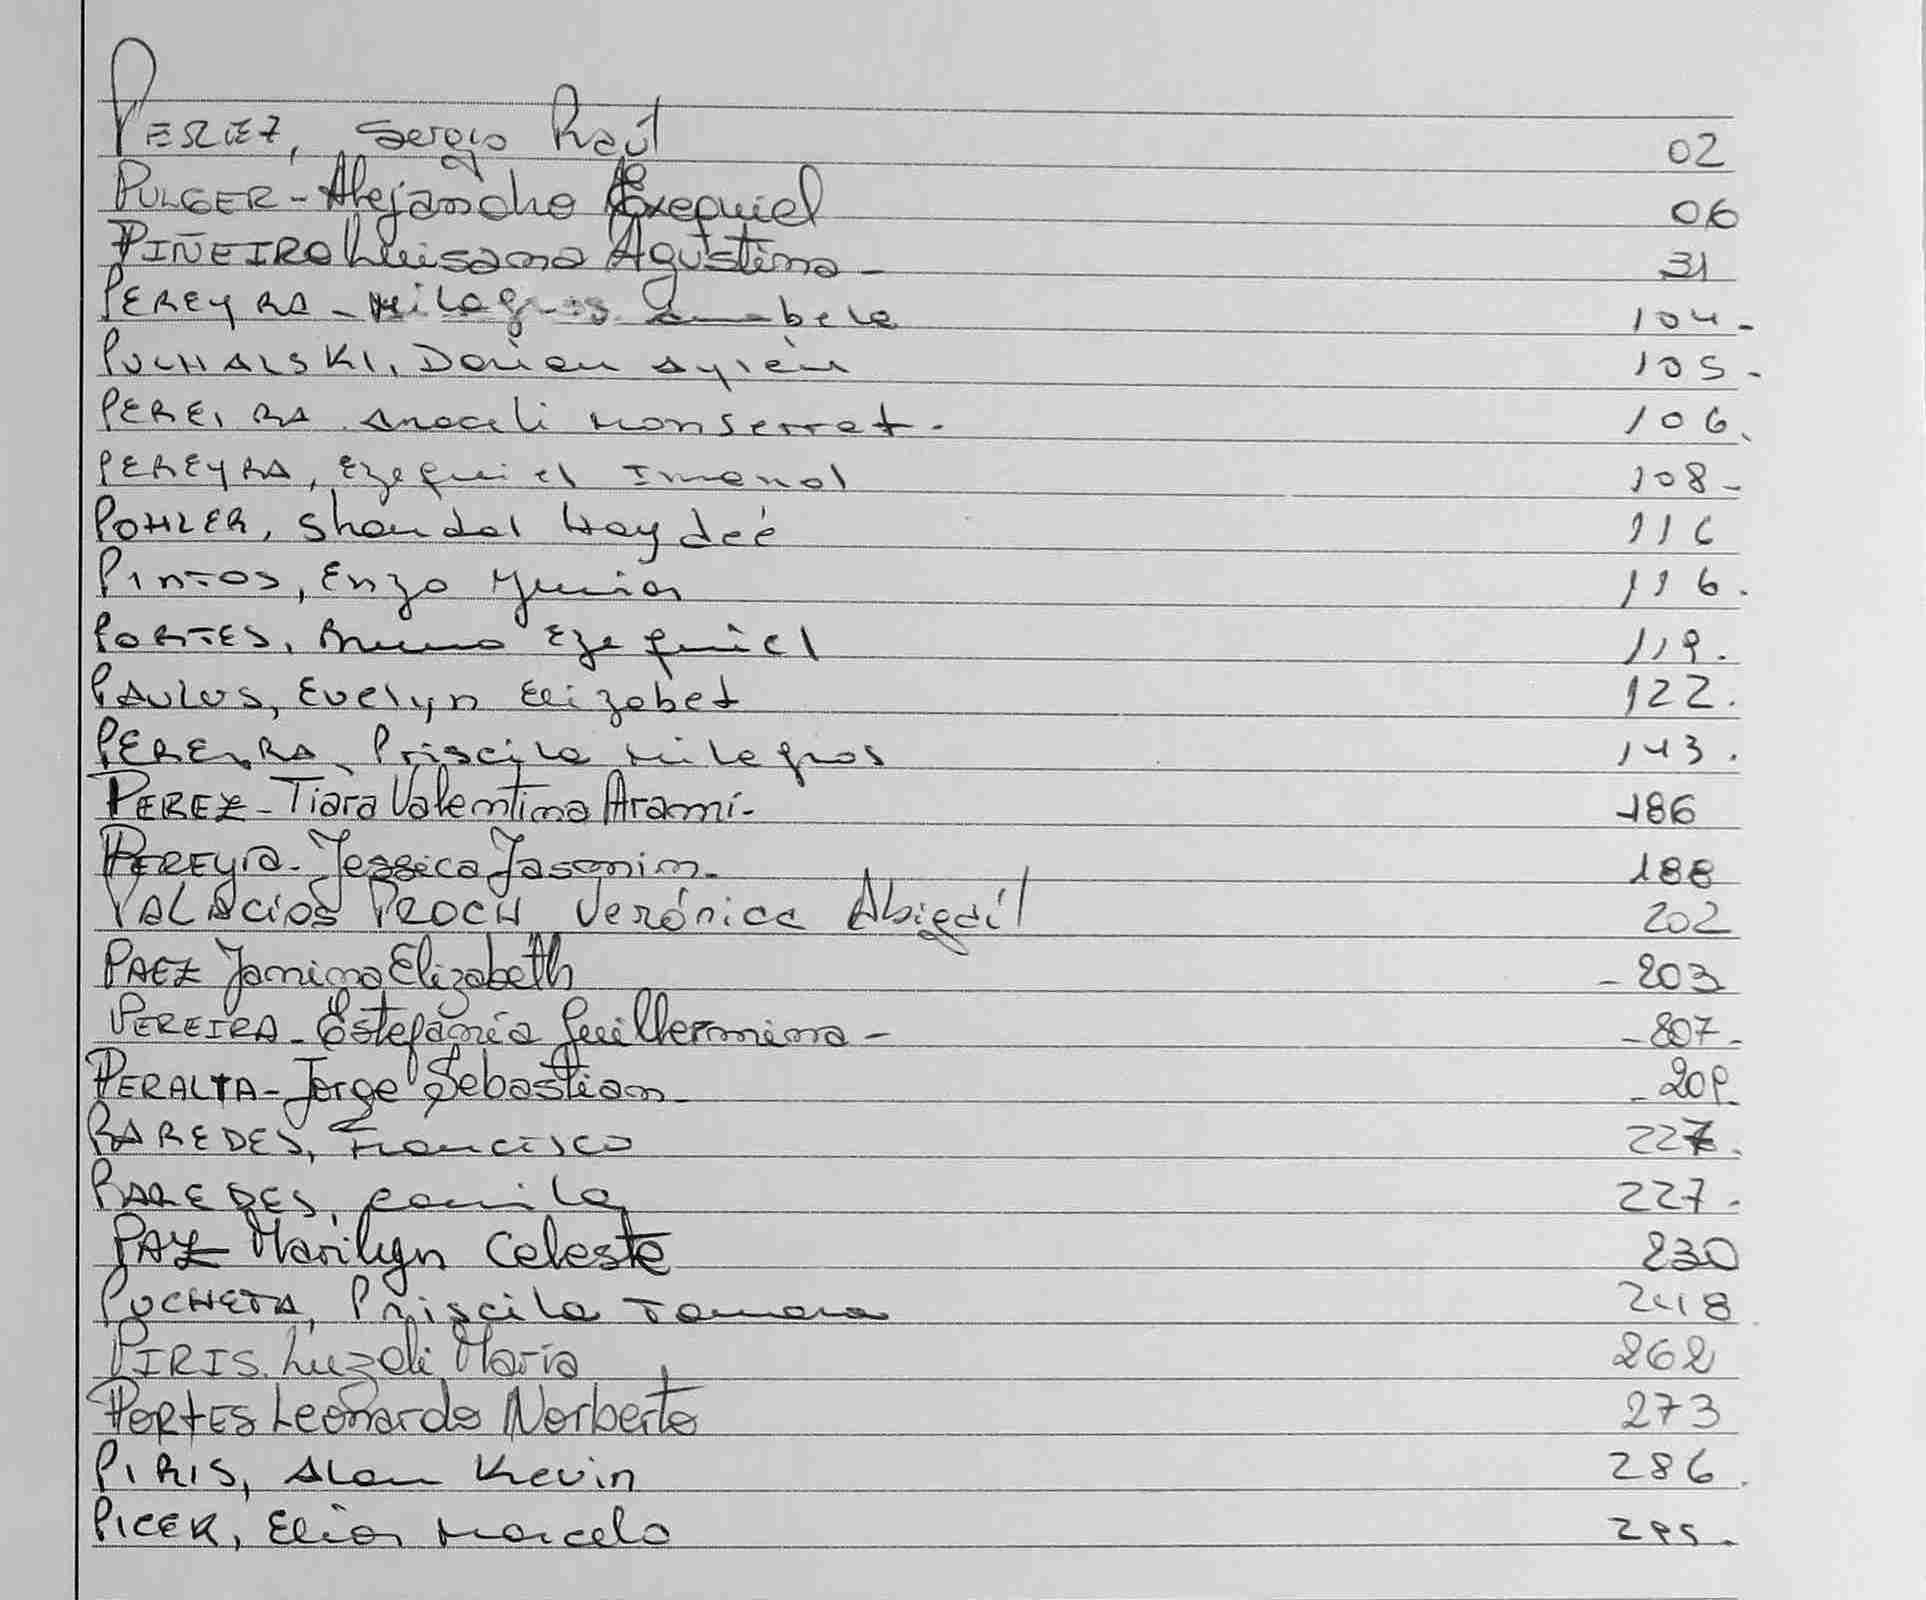 PERUEZ, Sergio Raúl 02
PULGER - Alejandro Exequiel 06
PIÑEIRO Luisana Agustina - 31
PEREYRA - Milagros Anabela 104 -
PUCHALSKI, Dorien Ayién 105 -
PEREIRA Araceli Monserrat. 106.
PEREYRA, Ezequiel Imanol 108 -
POHLER, Shandal Haydeé 116
PINTOS, Enzo Junior 116.
PORTES, Bruno Ezequiel 119.
PAULUS, Evelyn Elizabet 122.
PEREIRA, Priscila Milagros 143.
PEREZ - Tiara Valentina Arami - 186
PEREYRA - Jessica Jasmin - 188
PALACIOS PROCH Verónica Abigail 202
PAEZ Jamina Elizabeth - 203
PEREIRA - Estefanía Guillermina - - 207 -
PERALTA - Jorge Sebastian - - 209 -
PAREDES, Francisco 227.
PAREDES, Camila 227 -
PAZ Marilyn Celeste 230
PUCHETA, Priscila Tamara 248
PIRIS Luzdi María 262
PORTES Leonardo Norberto 273
PIRIS, Alan Kevin 286.
PICER, Elias Marcelo 295.